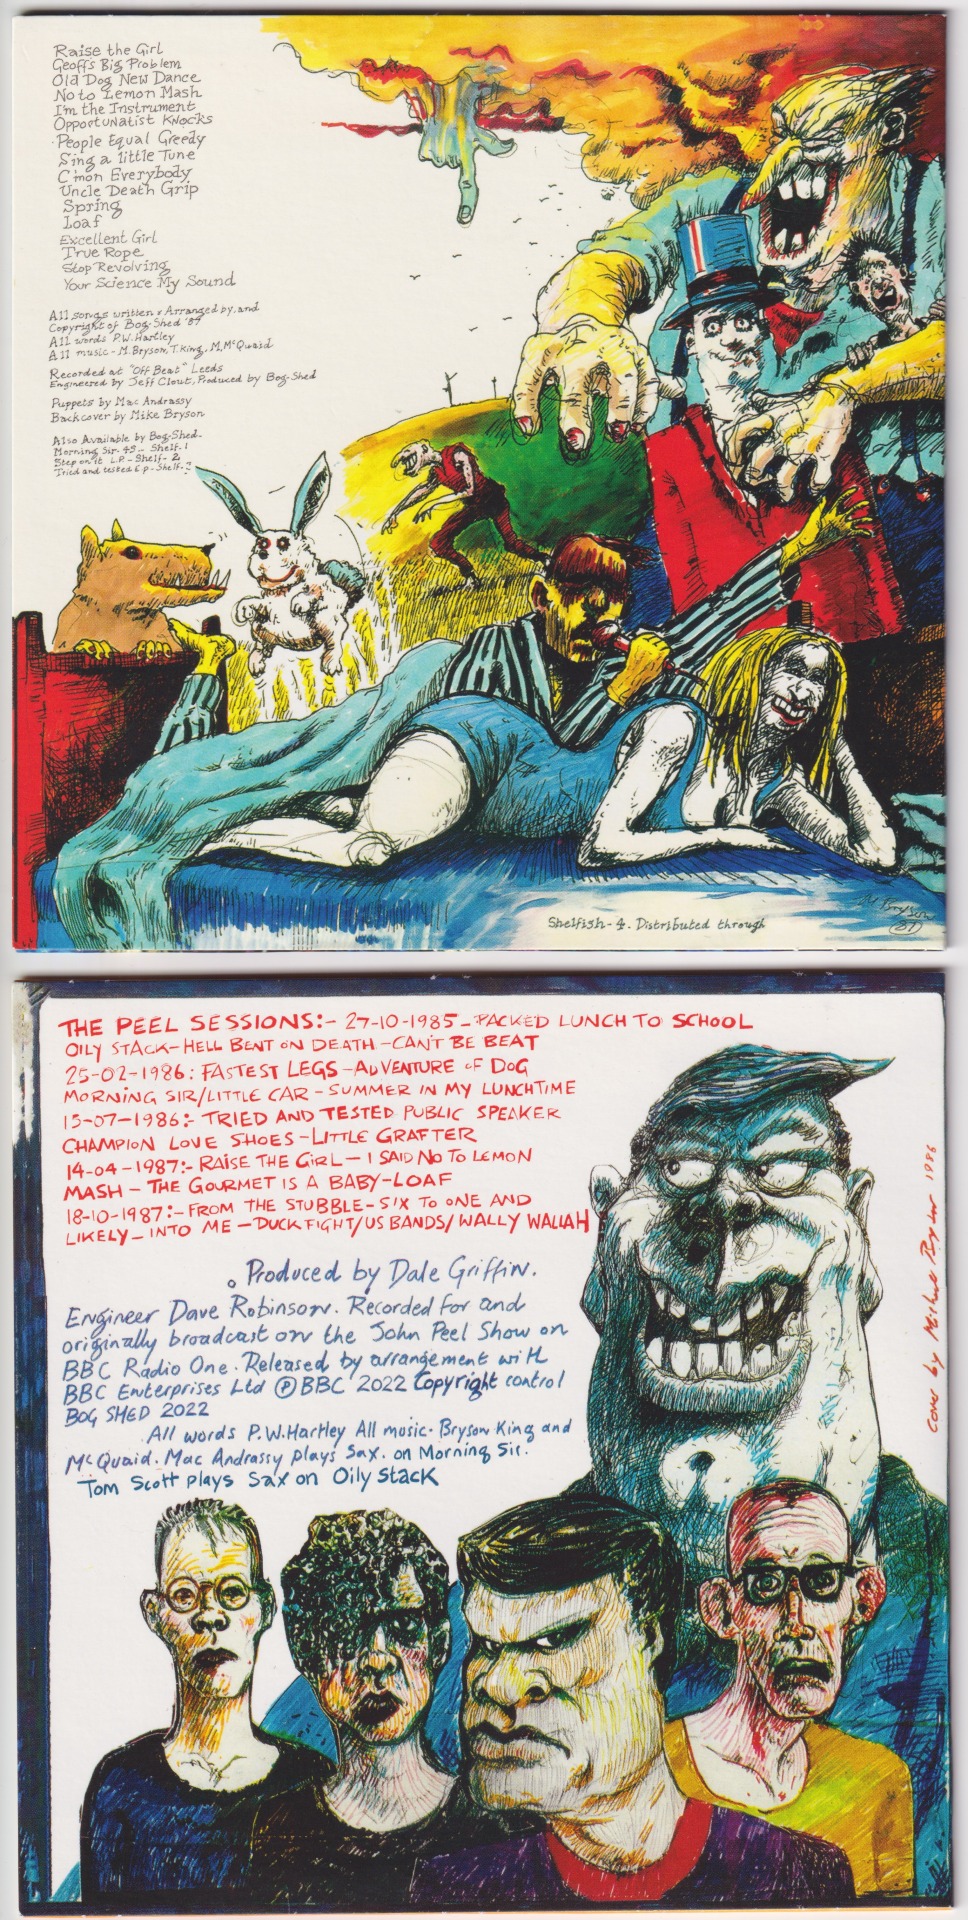 Raise the Girl
Geoffs Big Problem
Old Dog New Dance
No to Lemon Mash
I'm the Instrument
Opportunatist Knocks
People Equal Greedy
Sing a little Tune
C'mon Everybody
Uncle Death Grip
Spring
Loaf
Excellent Girl
True Rope
Stop Revolving
Your Science My Sound
All songs written & Arranged by, and
Copyright of Bog-Shed '87
All words P.W. Hartley
All music - M. Bryson, T. King, M. McQuaid
Recorded at "Off Beat" Leeds
Engineered by Jeff Clout, Produced by Bog-Shed
Puppets by Mac Andrassy
Back cover by Mike Bryson
Also Available by Bog-Shed-
Morning Sir. 45 - Shelf-1
Step on it L.P. - Shelf-2
Tried and tested E.p - Shelf-3
M Bryson
87
Shelfish-4. Distributed through
THE PEEL SESSIONS:- 27-10-1985 - PACKED LUNCH TO SCHOOL
OILY STACK - HELL BENT ON DEATH - CAN'T BE BEAT
25-02-1986: FASTEST LEGS - ADVENTURE OF DOG
MORNING SIR/LITTLE CAR - SUMMER IN MY LUNCHTIME
15-07-1986:- TRIED AND TESTED PUBLIC SPEAKER
CHAMPION LOVE SHOES - LITTLE GRAFTER
14-04-1987:- RAISE THE GIRL - I SAID NO TO LEMON
MASH - THE GOURMET IS A BABY - LOAF
18-10-1987:- FROM THE STUBBLE - SIX TO ONE AND
LIKELY - INTO ME - DUCK FIGHT/US BANDS/WALLY WALLAH
Produced by Dale Griffin.
Engineer Dave Robinson. Recorded for and
originally broadcast on the John Peel Show on
BBC Radio One. Released by arrangement with
BBC Enterprises Ltd ℗ BBC 2022 Copyright control
BOG SHED 2022
All words P.W. Hartley All music - Bryson King and
McQuaid. Mac Andrassy plays Sax. on Morning Sir.
Tom Scott plays Sax on Oily Stack
Cover by Michael Bryson 1986